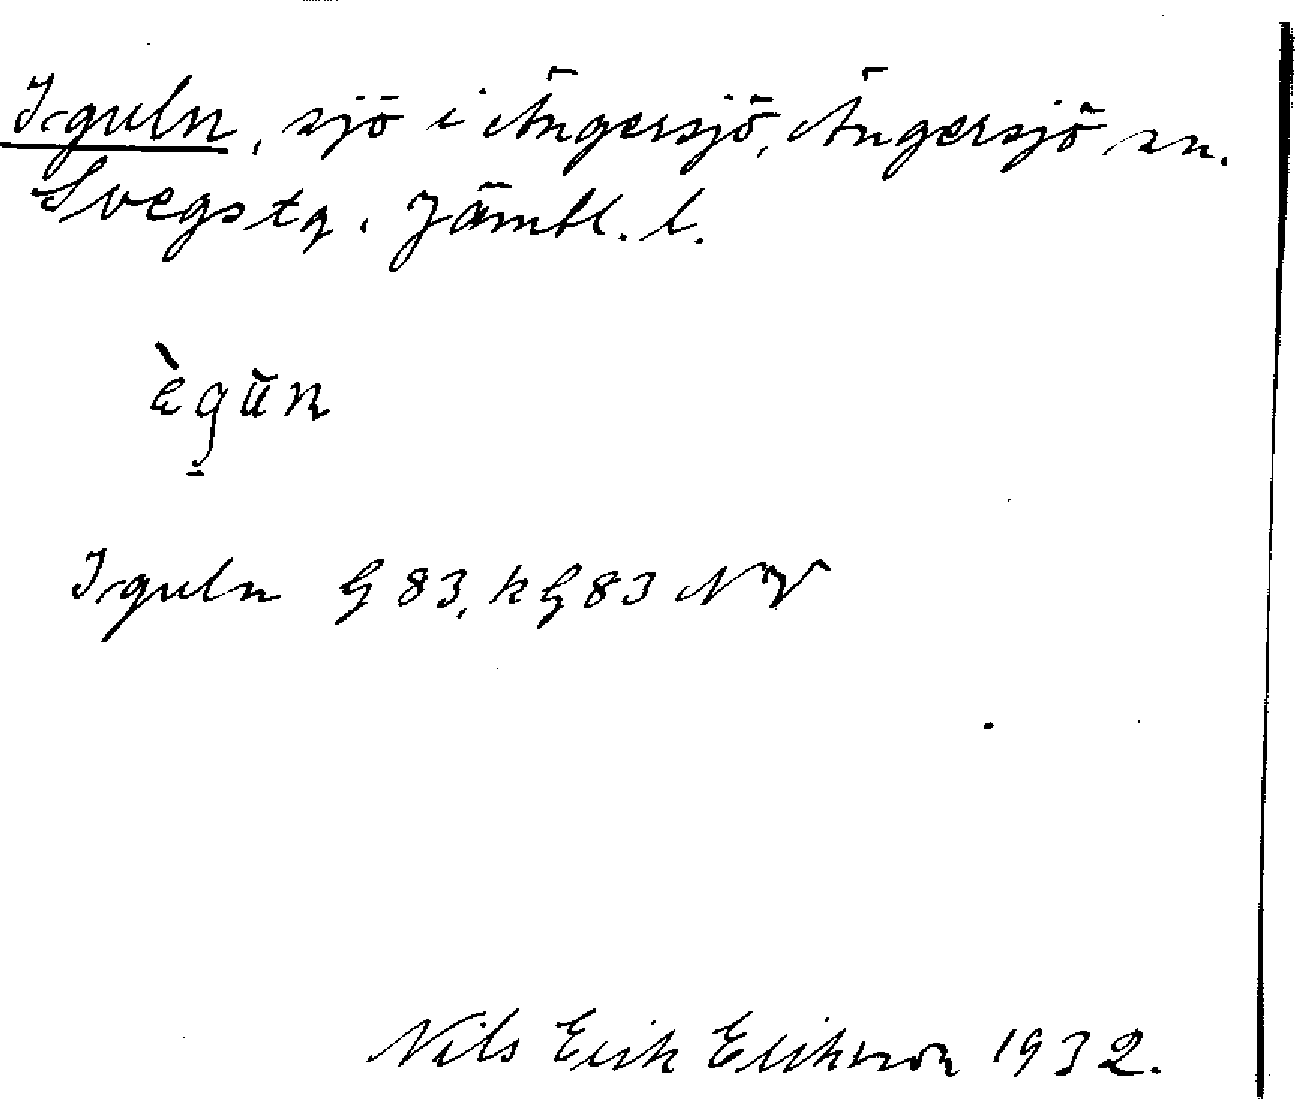 Iguln, sjö i Ängersjö, Ängersjö sn.
Svegs tg. Jämtl. l.
ègŭn
Iguln G 83, k G 83 NV
Nils Erik Erikson 1932.